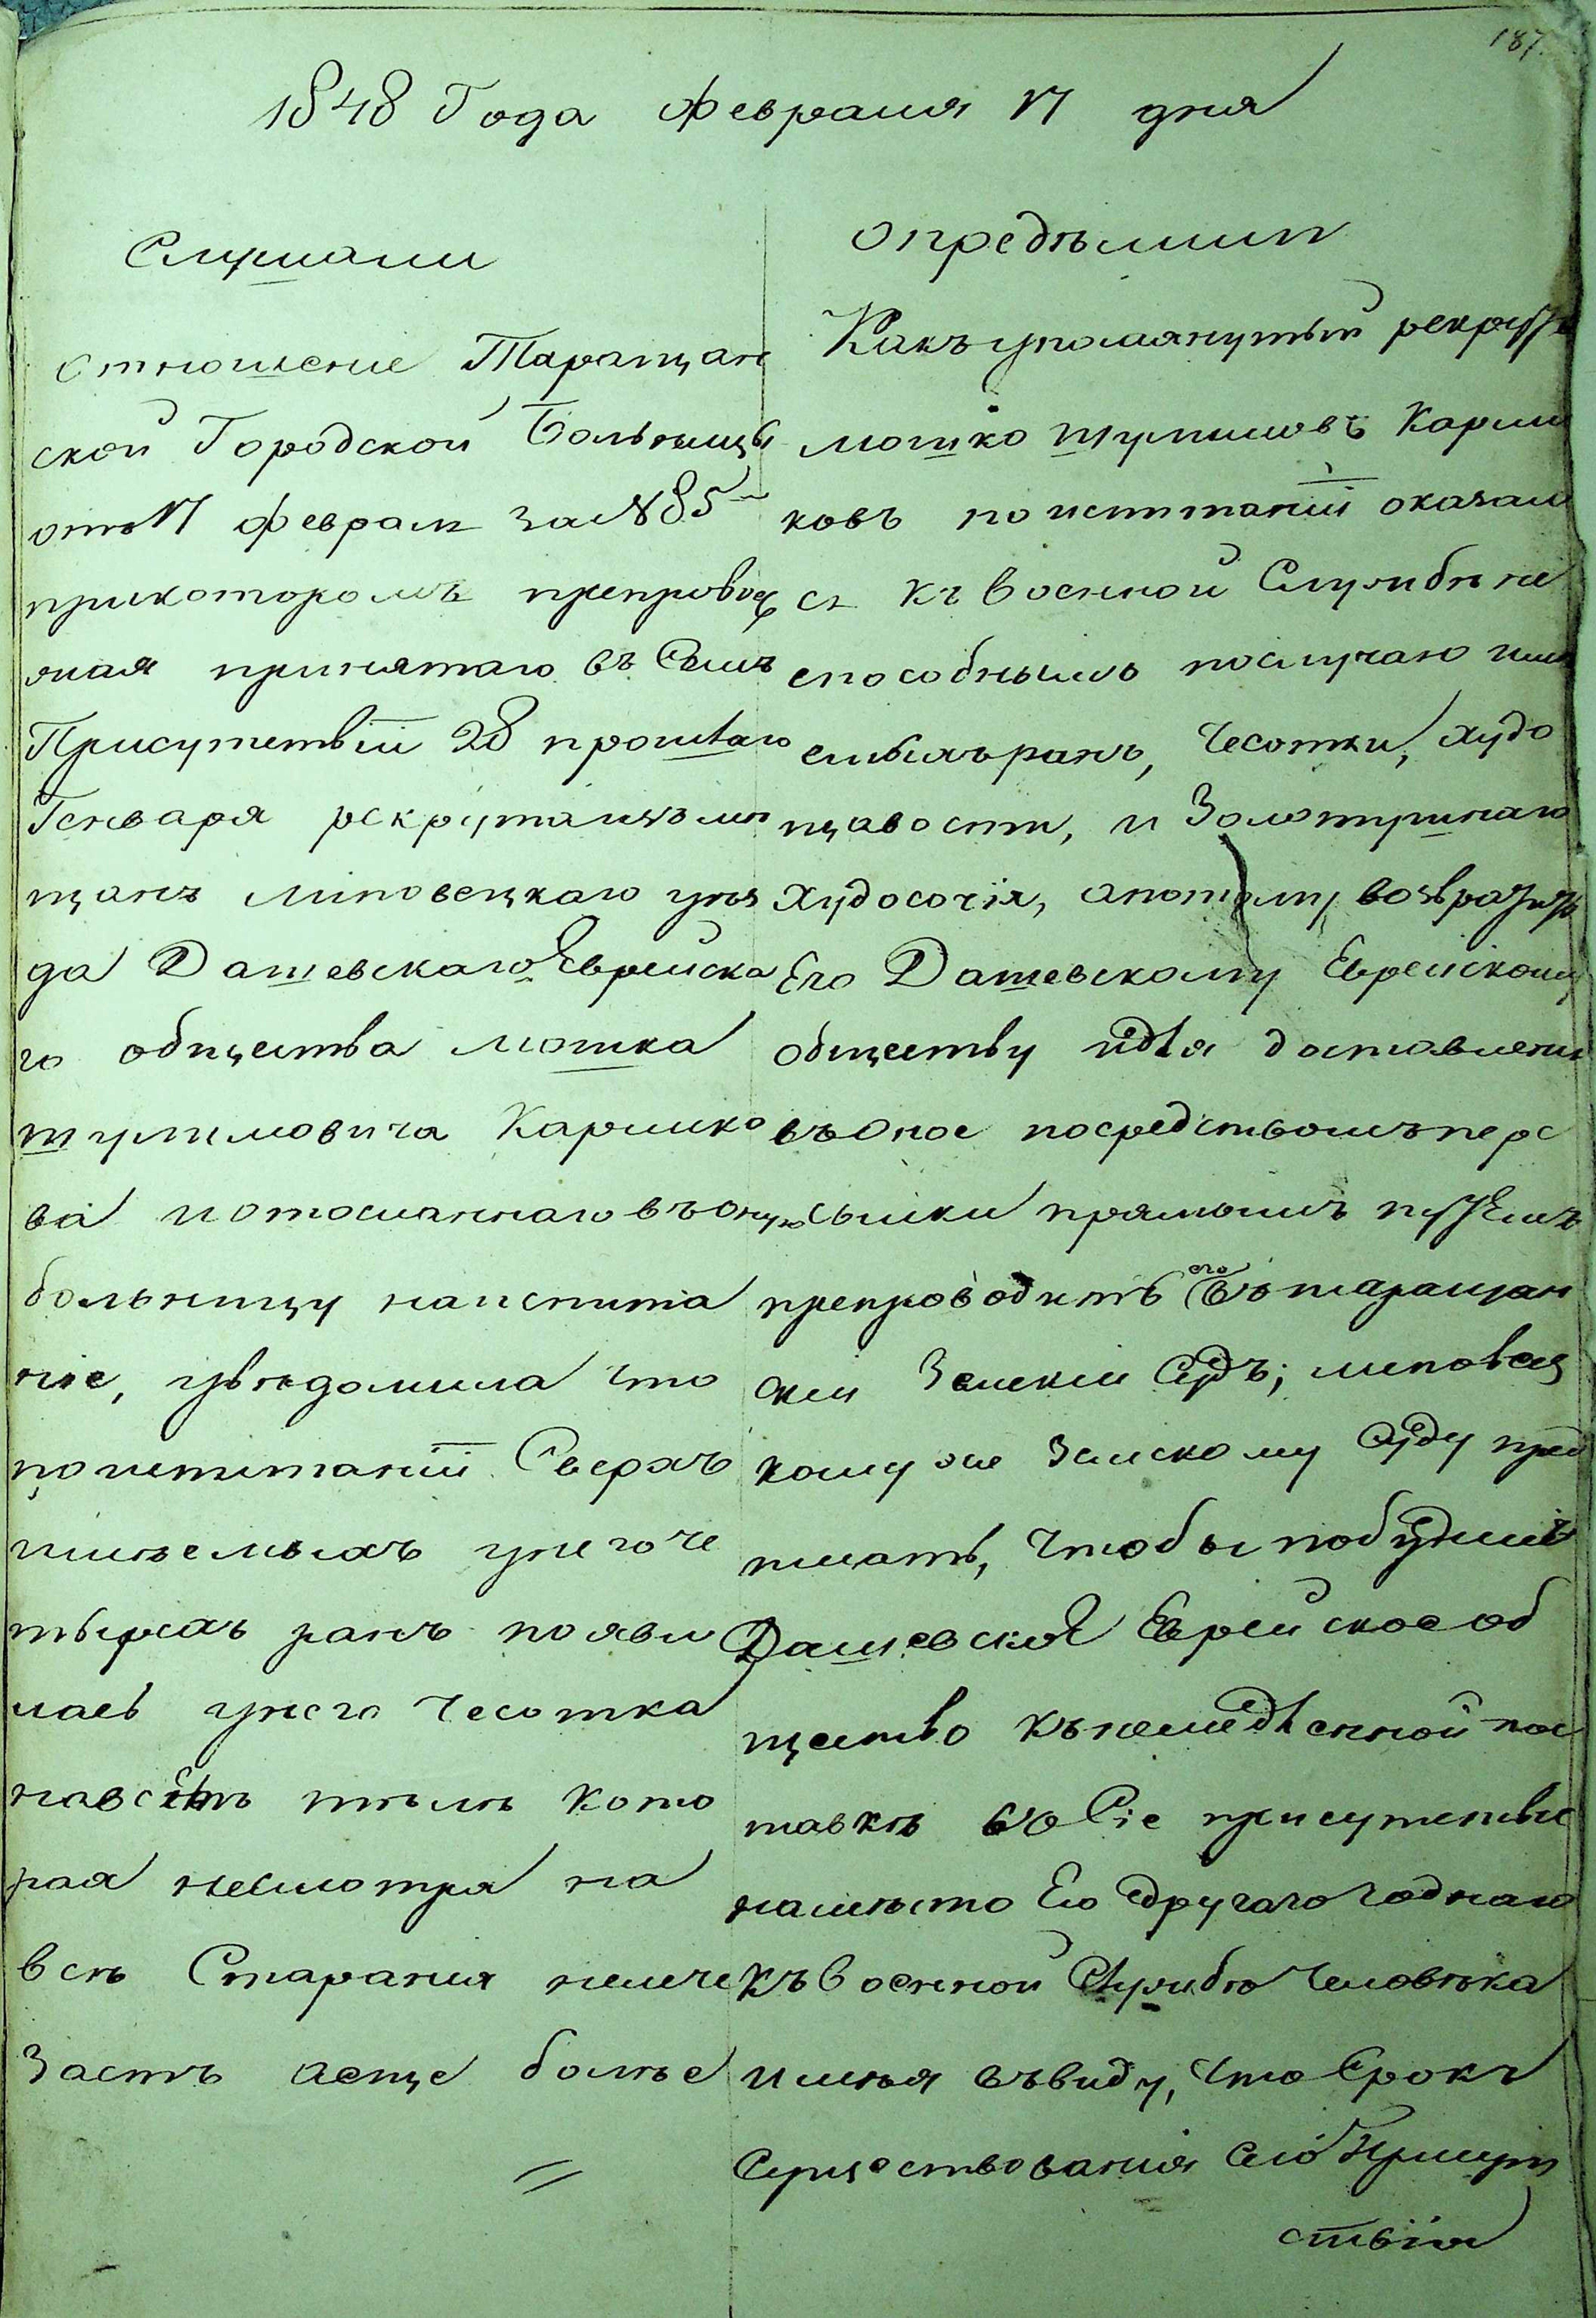 187.
1848 Года Февраля 17 дня
Слушали
Отношение Таращан
ской Городской Больницы
отъ 17 Февраля за №85
прикоторомъ препровож
дая принятаго въ Семъ
Присутствіи 28 прошлаго
Генваря рекрута изъ мѣ
щанъ Липовецкаго уѣз
да Дашевскаго Еврейска
го общества Мошка
Шулимовича Карлико
ва и отосланнаго въ оную
больницу на испыта
ніе, увѣдомила что
по испытаніи Сверхъ
имѣемыхъ у него че
тырехъ ранъ появи
лась у него Чесотка
на всемъ тѣлѣ кото
рая несмотря на
всѣ Старанія неисче
заетъ аеще болѣе
Опредѣлили
Какъ упомянутый рекрутъ
Мошко Шулимовъ Карли
ковъ по испытаніи оказал
ся къ Военной Службѣ не
способнымъ послучаю имѣ
емыхъ ранъ, Чесотки, худо
щавости, и Золотушнаго
худосочія, апотому возвратить
Его Дашевскому Еврейскому
обществу идля доставленія
въ оное посредствомъ пере
сылки прямымъ путемъ
препроводить его въ Таращан
скій Земскій Судъ; Липовец
кому же Земскому Суду пред
писать, Чтобы побудилъ
Дашевское Еврейское об
щество къ немедленной пос
тавкѣ во Сіе присутствіе
намѣсто Его другаго годнаго
къ Военной Службѣ Человѣка
имѣя въ виду, Что Срокъ
Существованія Сего Присут
ствія